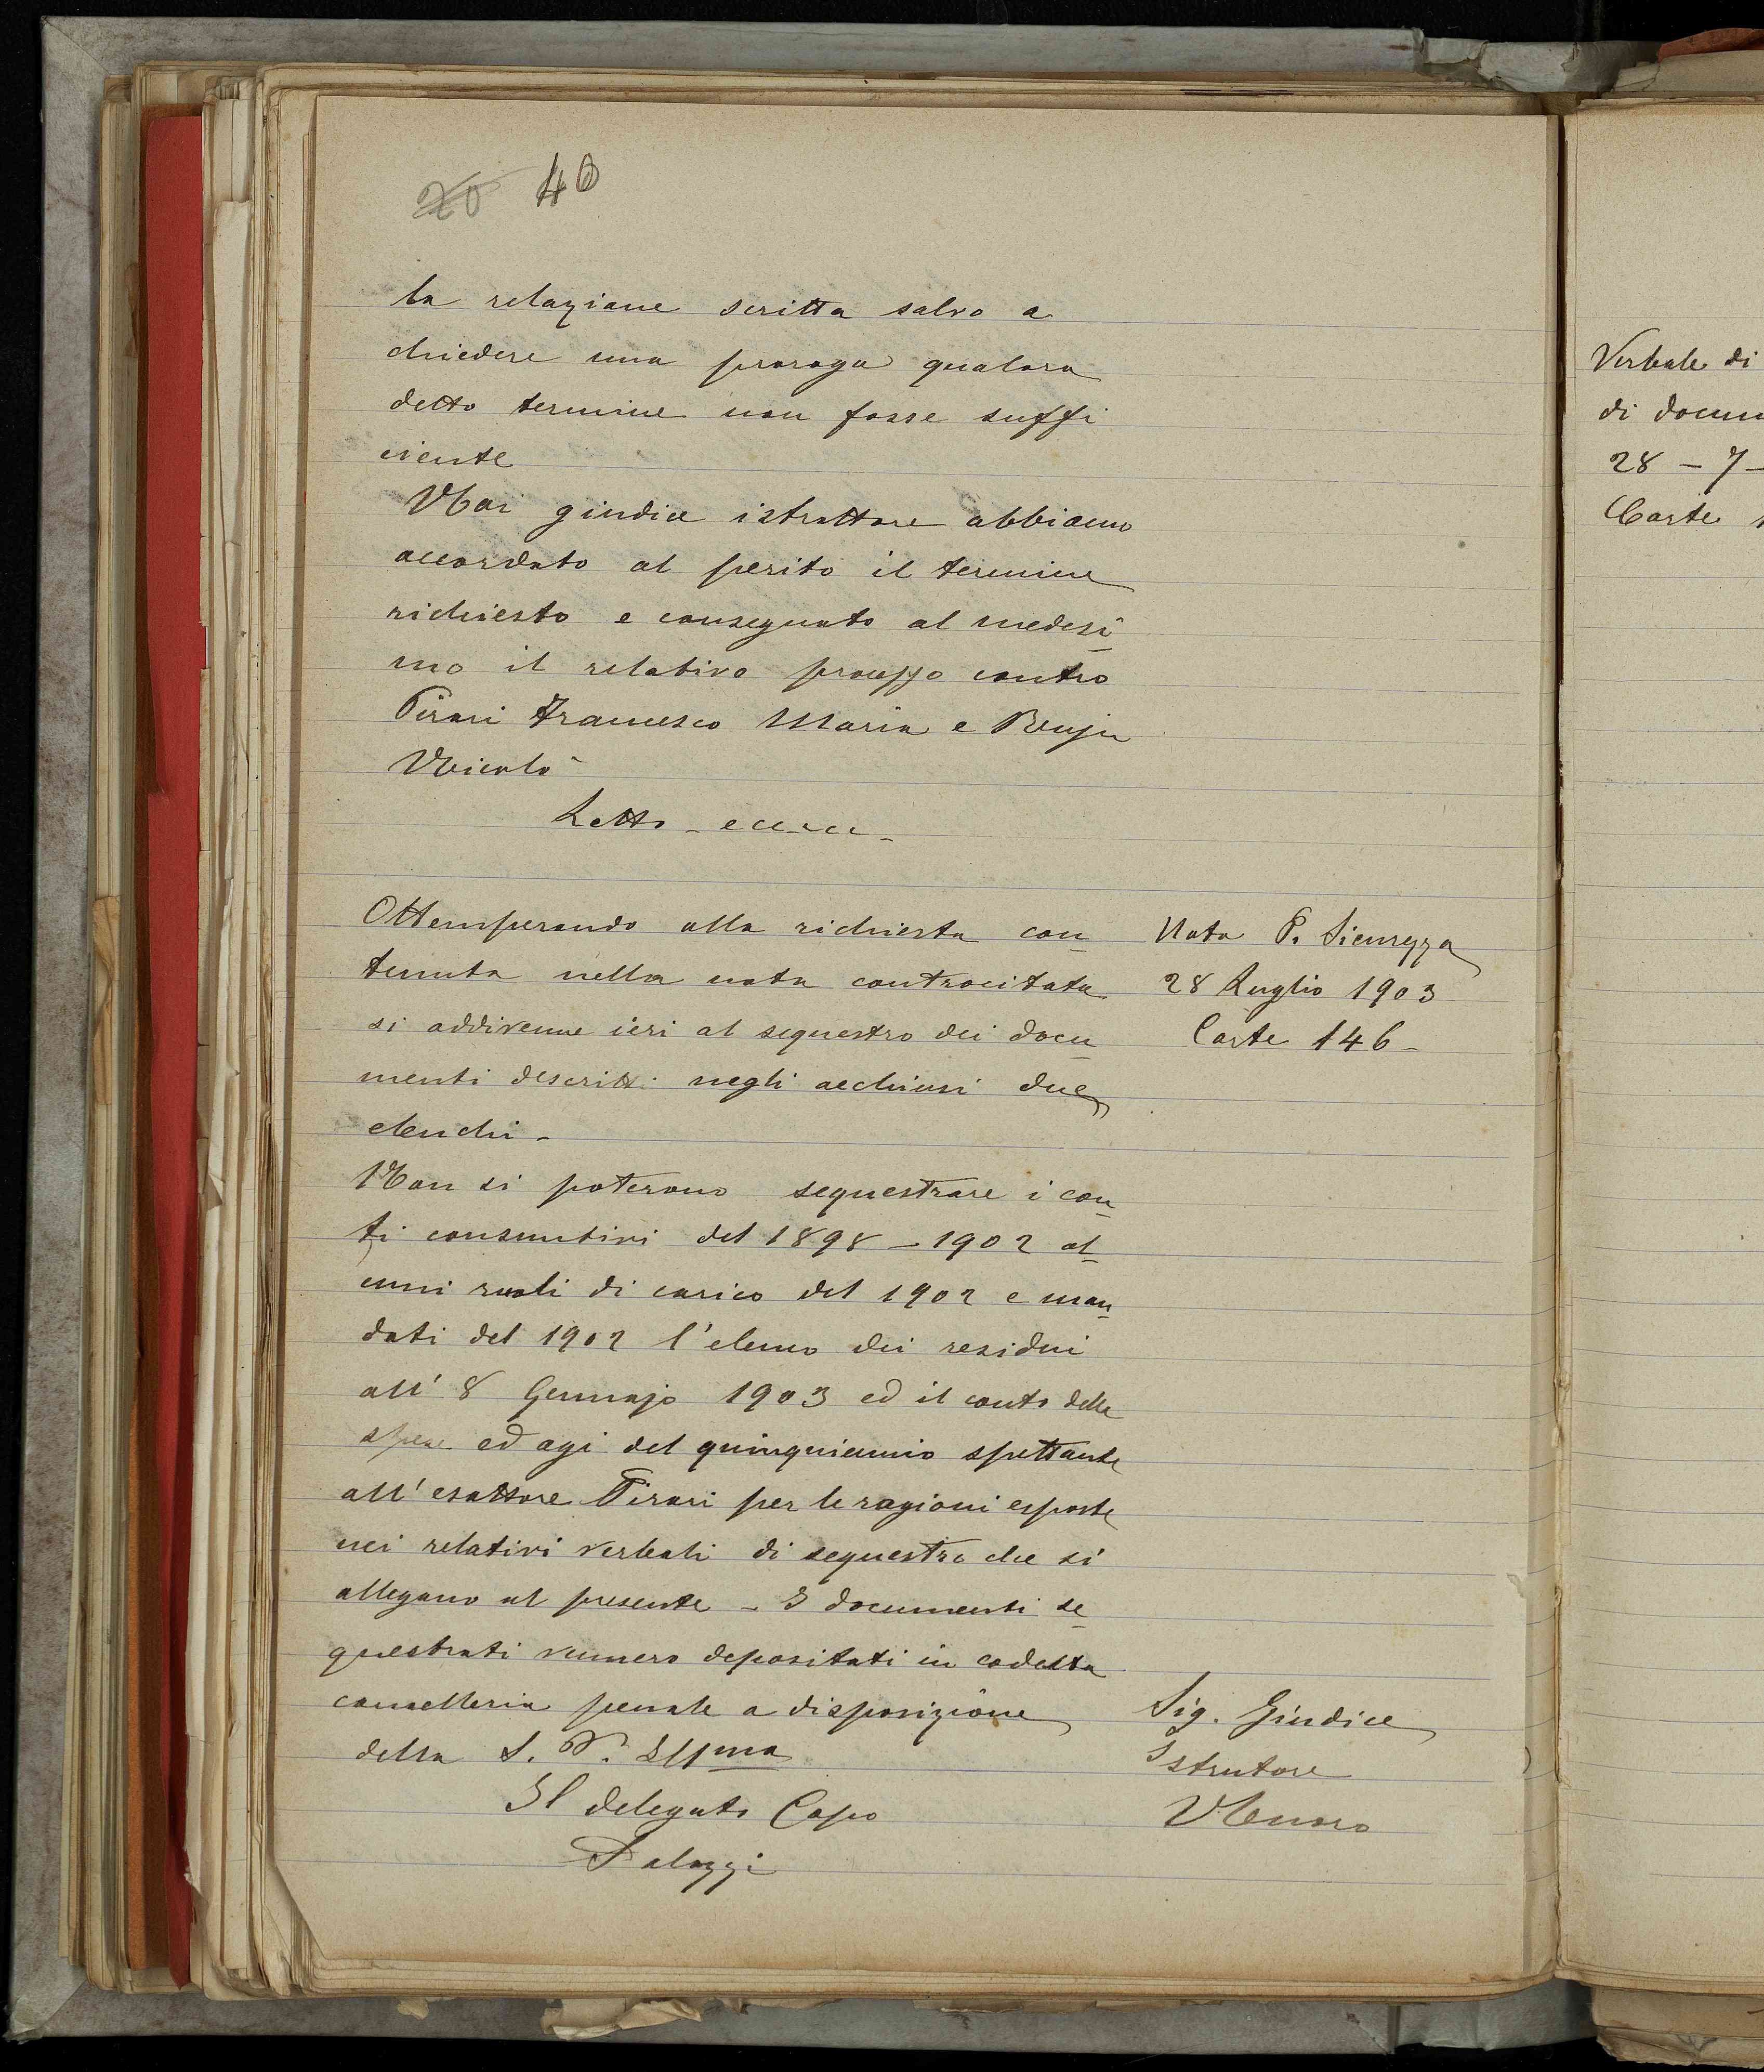 20 40
la relazione scritta salvo a
chiedere una proroga qualora
detto termine non fosse suffi
ciente
Noi giudice istruttore abbiamo
accordato al perito il termine
richiesto e consegnato al medesi
mo il relativo processo contro
Pirari Francesco Maria e
Nicolò
Letto - ecc.cc -
Ottemperando alla richiesta con
tenuta nella nota controcitata
si addivenne ieri al sequestro dei docu
menti descritti negli acchiusi due
elenchi -
Non si poterono sequestrare i con
ti consuntivi del 1898 - 1902 al
cuni ruoli di carico del 1902 e man
dati del 1902 l'elenco dei residui
all' 8 Gennajo 1903 ed il conto delle
spese ed agi del quinquiennio spettante
all'esattore Pirari per le ragioni esposte
nei relativi verbali di sequestro che si
allegano al presente - I documenti se
questrati vennero depositati in codesta
cancelleria penale a disposizione
della S. V. Illma
Il delegato Capo
Nota P. Sicurezza
28 Luglio 1903
Carte 146 -
Sig. Giudice
Istrutore
Nuoro
Verbale di
di docum
28 - 7 -
Carte